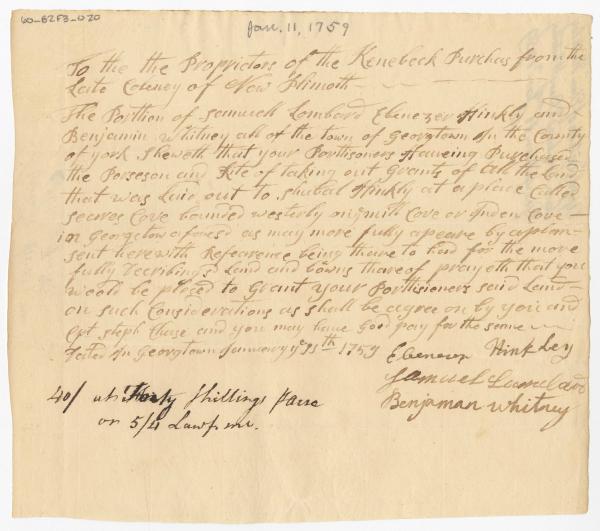 60-B2F3-020
Jan. 11, 1759
To the the Proprietors of the Kenebeck Purchas from the
Late Coloney of New Plimoth
The Porthion of Samuell Lombard Ebenezer Hinkly and
Benjamin Whitney all of the town of Georgtown In the County
of york Sheweth that your Porthisoners Haveing Purchased
the Porseson and Rite of taking out Grants of All the Land
that was Laid out to Shubal Hinkly at a place Called
Seares Cove bounded westerly on mill Cove or Cove
in Georgetow aforesd as may more fully apeare by a plan
sent herewith Refearence being thare to had for the more
fully Decribing sd Land and bowns thareof prayeth that you
would be plesed to Grant your Porthisieners said Land
on such Considerations as shall be agree on by you and
Cpt steph Chase and you may have Good pay for the same
Dated In Georgtown January ye 11th 1759
Ebenezer Hinkley
Samuel Lumbard
Benjaman Whitney
40/ at Forty Shillings
or 5/4 Lawf. m.